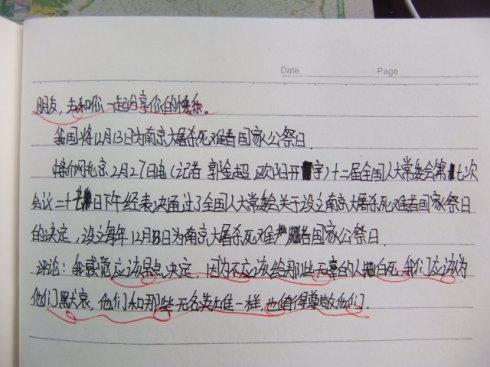 Date Page
朋友，去和你一起分享你的快乐。
我国将12月13日为南京大屠杀死难者国家公祭日
中新网北京2月27日电（记者 郭金超 欧阳开宇）十二届全国人大常委会第七次
会议二十七日下午经表决通过了全国人大常委会关于设立南京大屠杀死难者国家公祭日
的决定，设立每年12月13日为南京大屠杀死难者国家公祭日.
评论：我感觉应该早点决定，因为不应该给那些无辜的人白死，我们应该为
他们默哀，他们和那些无名英雄一样，也值得尊敬他们.